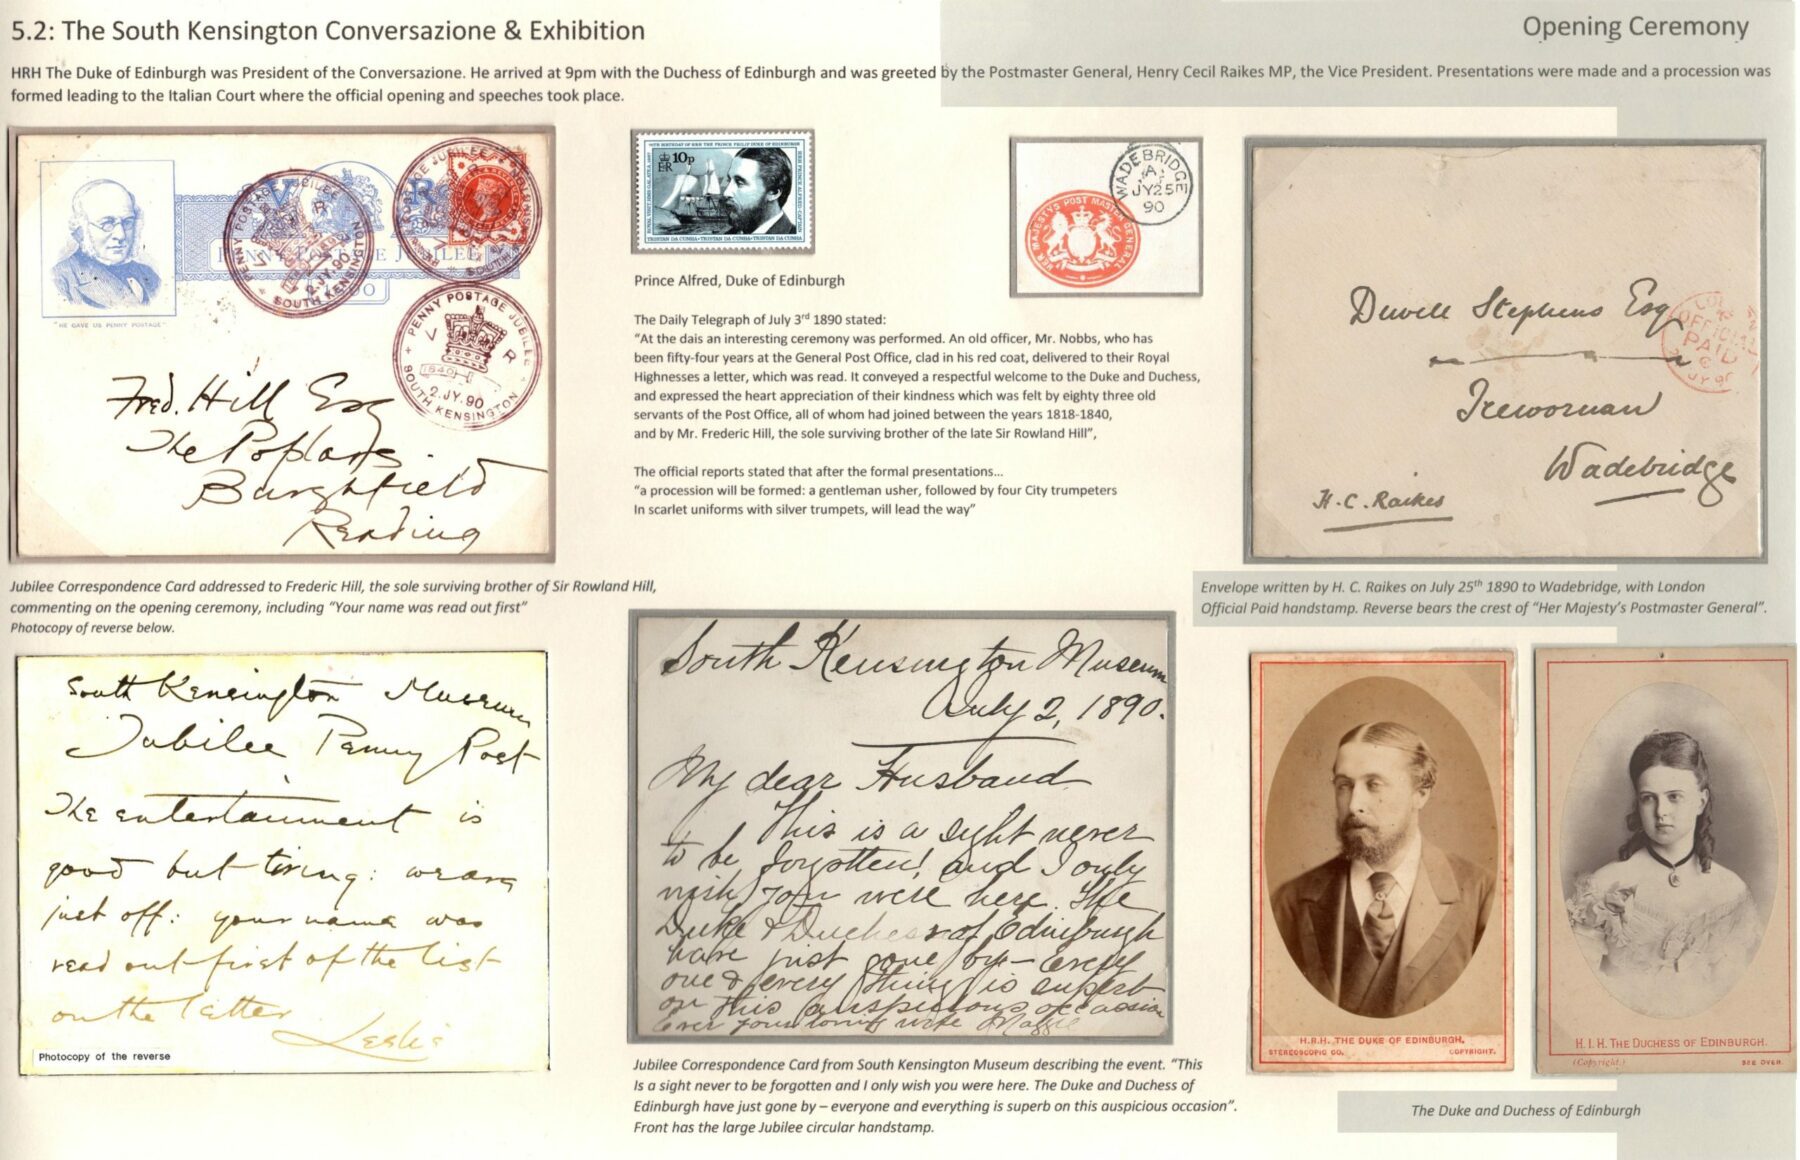 5.2: The South Kensington Conversazione & Exhibition
Opening Ceremony
HRH The Duke of Edinburgh was President of the Conversazione. He arrived at 9pm with the Duchess of Edinburgh and was greeted by the Postmaster General, Henry Cecil Raikes MP, the Vice President. Presentations were made and a procession was
formed leading to the Italian Court where the official opening and speeches took place.
V R
PENNY POSTAGE JUBILEE
"HE GAVE US PENNY POSTAGE"
PENNY POSTAGE JUBILEE
2 JY.90
SOUTH KENSINGTON
PENNY POSTAGE JUBILEE
V R
1840
2.JY.90
SOUTH KENSINGTON
Fred. Hill Esq
The Poplars
Burghfield
Reading
Jubilee Correspondence Card addressed to Frederic Hill, the sole surviving brother of Sir Rowland Hill,
commenting on the opening ceremony, including "Your name was read out first"
Photocopy of reverse below.
South Kensington Museum
Jubilee Penny Post
The entertainment is
good but tiring: we are
just off: your name was
read out first of the list
on the letter
Leslie
Photocopy of the reverse
10p
ER
TRISTAN DA CUNHA•TRISTAN DA CUNHA•TRISTAN DA CUNHA
Prince Alfred, Duke of Edinburgh
WADEBRIDGE
A
JY25
90
HER MAJESTYS POST MASTER GENERAL
The Daily Telegraph of July 3rd 1890 stated:
"At the dais an interesting ceremony was performed. An old officer, Mr. Nobbs, who has
been fifty-four years at the General Post Office, clad in his red coat, delivered to their Royal
Highnesses a letter, which was read. It conveyed a respectful welcome to the Duke and Duchess,
and expressed the heart appreciation of their kindness which was felt by eighty three old
servants of the Post Office, all of whom had joined between the years 1818-1840,
and by Mr. Frederic Hill, the sole surviving brother of the late Sir Rowland Hill",
The official reports stated that after the formal presentations…
"a procession will be formed: a gentleman usher, followed by four City trumpeters
In scarlet uniforms with silver trumpets, will lead the way"
South Kensington Museum
July 2, 1890.
My dear Husband
This is a sight never
to be forgotten! and I only
wish you were here. The
Duke & Duchess of Edinburgh
have just gone by – Every
one & every thing is superb
on this auspicious occasion
Ever your loving wife Maggie
Jubilee Correspondence Card from South Kensington Museum describing the event. "This
Is a sight never to be forgotten and I only wish you were here. The Duke and Duchess of
Edinburgh have just gone by – everyone and everything is superb on this auspicious occasion".
Front has the large Jubilee circular handstamp.
Stephens Esq
Treworuan
Wadebridge
H. C. Raikes
OFFICIAL
PAID
JY 90
Envelope written by H. C. Raikes on July 25th 1890 to Wadebridge, with London
Official Paid handstamp. Reverse bears the crest of "Her Majesty's Postmaster General".
H.R.H. THE DUKE OF EDINBURGH.
STEREOSCOPIC CO. COPYRIGHT.
H. I. H. THE DUCHESS OF EDINBURGH.
(Copyright.) SEE OVER.
The Duke and Duchess of Edinburgh